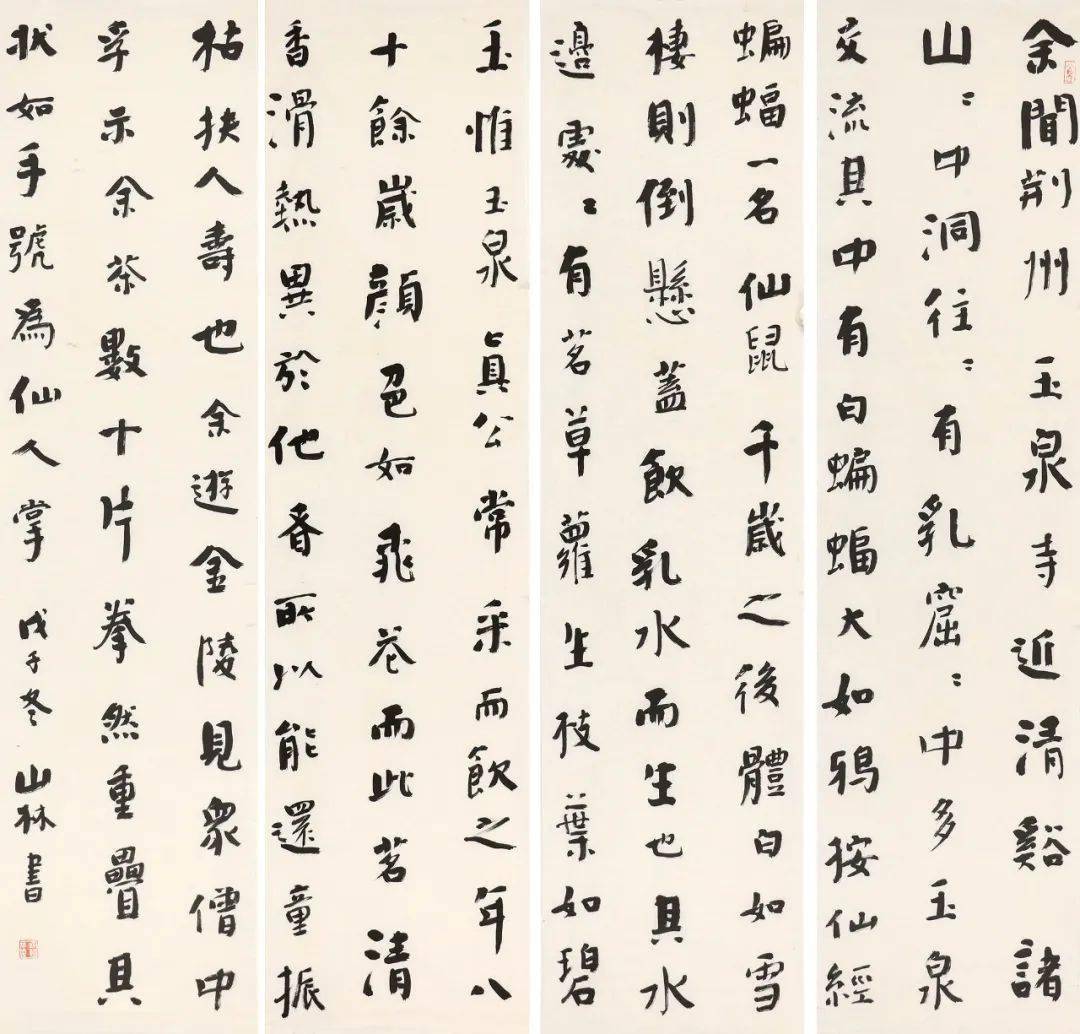 余聞荆州玉泉寺近清谿諸
山〻中洞往〻有乳窟〻中多玉泉
交流其中有白蝙蝠大如鴉按仙經
蝙蝠一名仙鼠千歲之後體白如雪
棲則倒懸蓋飲乳水而生也其水
邊處〻有茗草蘿生枝葉如碧
玉惟玉泉真公常采而飲之年八
十餘歲顏色如飛花而此茗清
香滑熱異於他香所以能還童振
枯扶人壽也余遊金陵見眾僧中
孚示余茶數十片拳然重疊其
狀如手號爲仙人掌 戊子冬 山林書